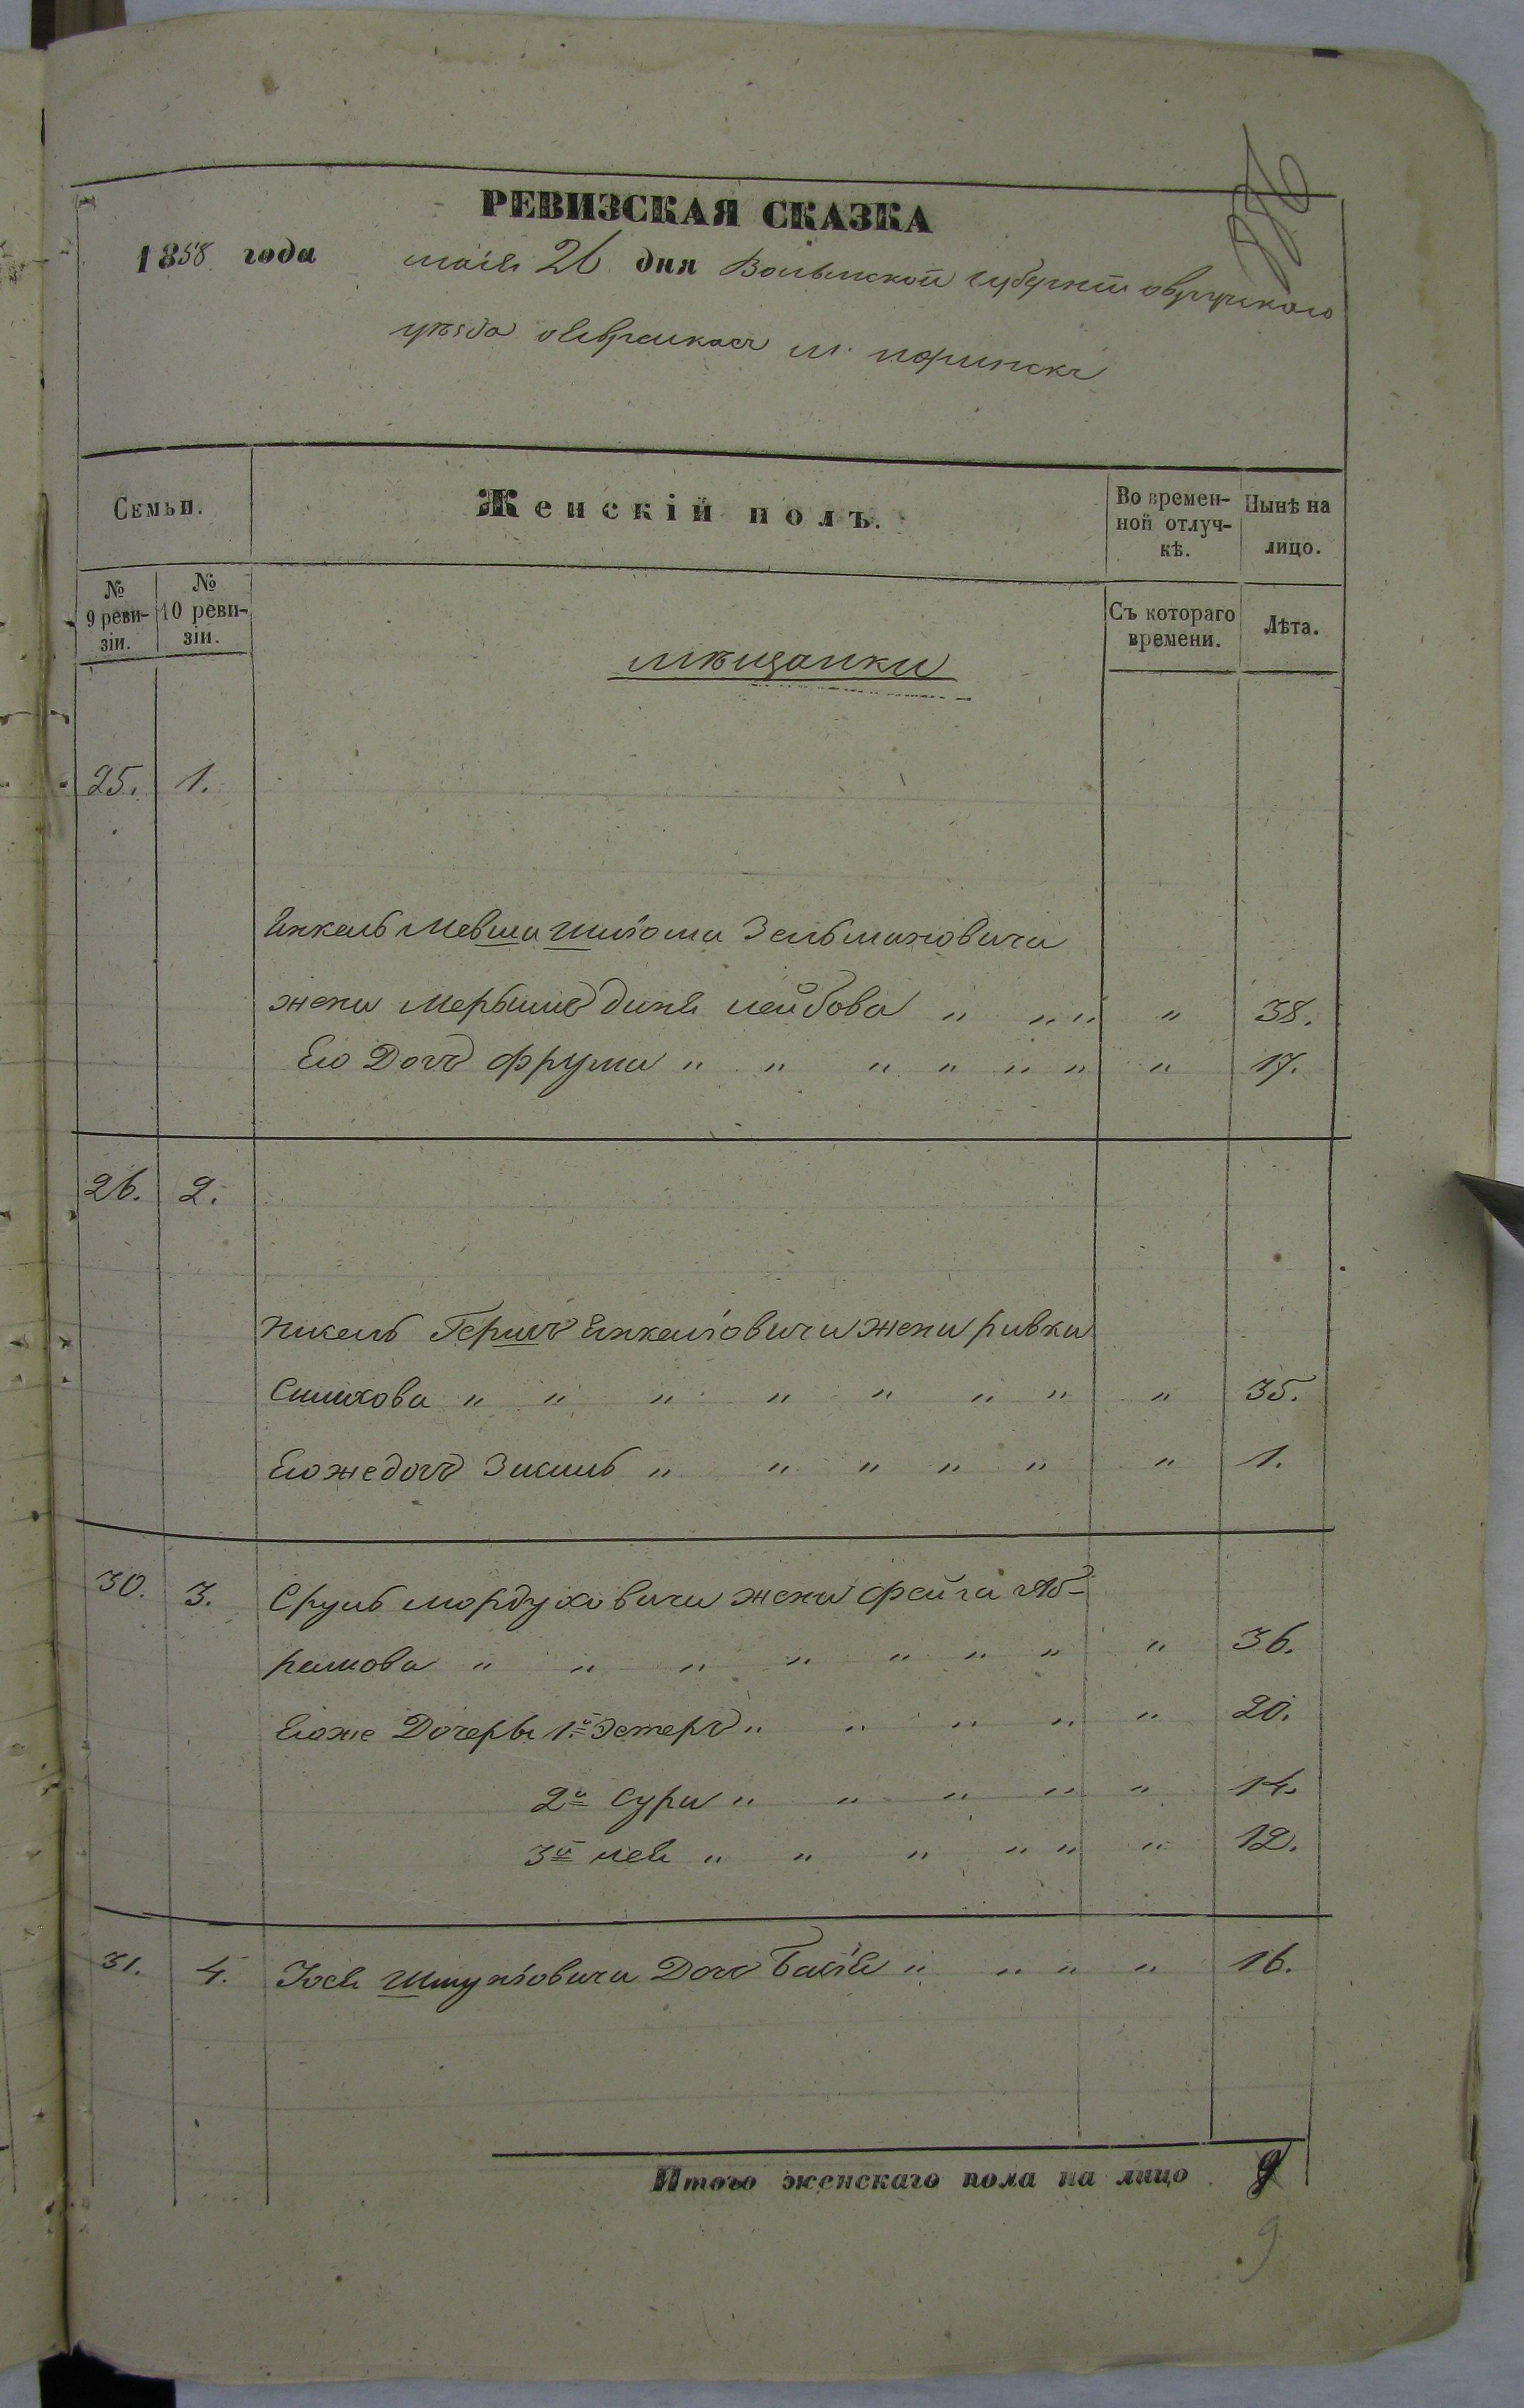 РЕВИЗСКАЯ СКАЗКА
1858 года маія 26 дня Волынской губерніи овручского
уѣзда о евреихъ м. норинскъ
Семьи.
Женскій полъ.
Во времен-
ной отлуч-
кѣ.
Нынѣ на
лицо.
№
9 реви-
зіи.
№
10 реви-
зіи.
Съ котораго
времени.
Лѣта.
мѣщанки
25. 1.
Енкель Мевша Шліома Зельмановича
жена Мерымъ Диня лейбова " " " " 38.
Его Дочь Фрума " " " " " " " 17.
26. 2.
Герш Енкеліовича жена ривка
Симхова " " " " " " " " 35.
Егоже дочь " " " " " " 1.
30. 3. Сруль мордуховича жена фейга Аб-
рамова " " " " " " " " 36.
Егоже Дочеры 1я Эстеръ " " " " " 20.
2я Сура " " " " " 14.
3я лея " " " " " " 12.
31. 4. Іося Шмуліовича Дочь Басія " " " " 16.
Итого женскаго пола на лицо 9
9